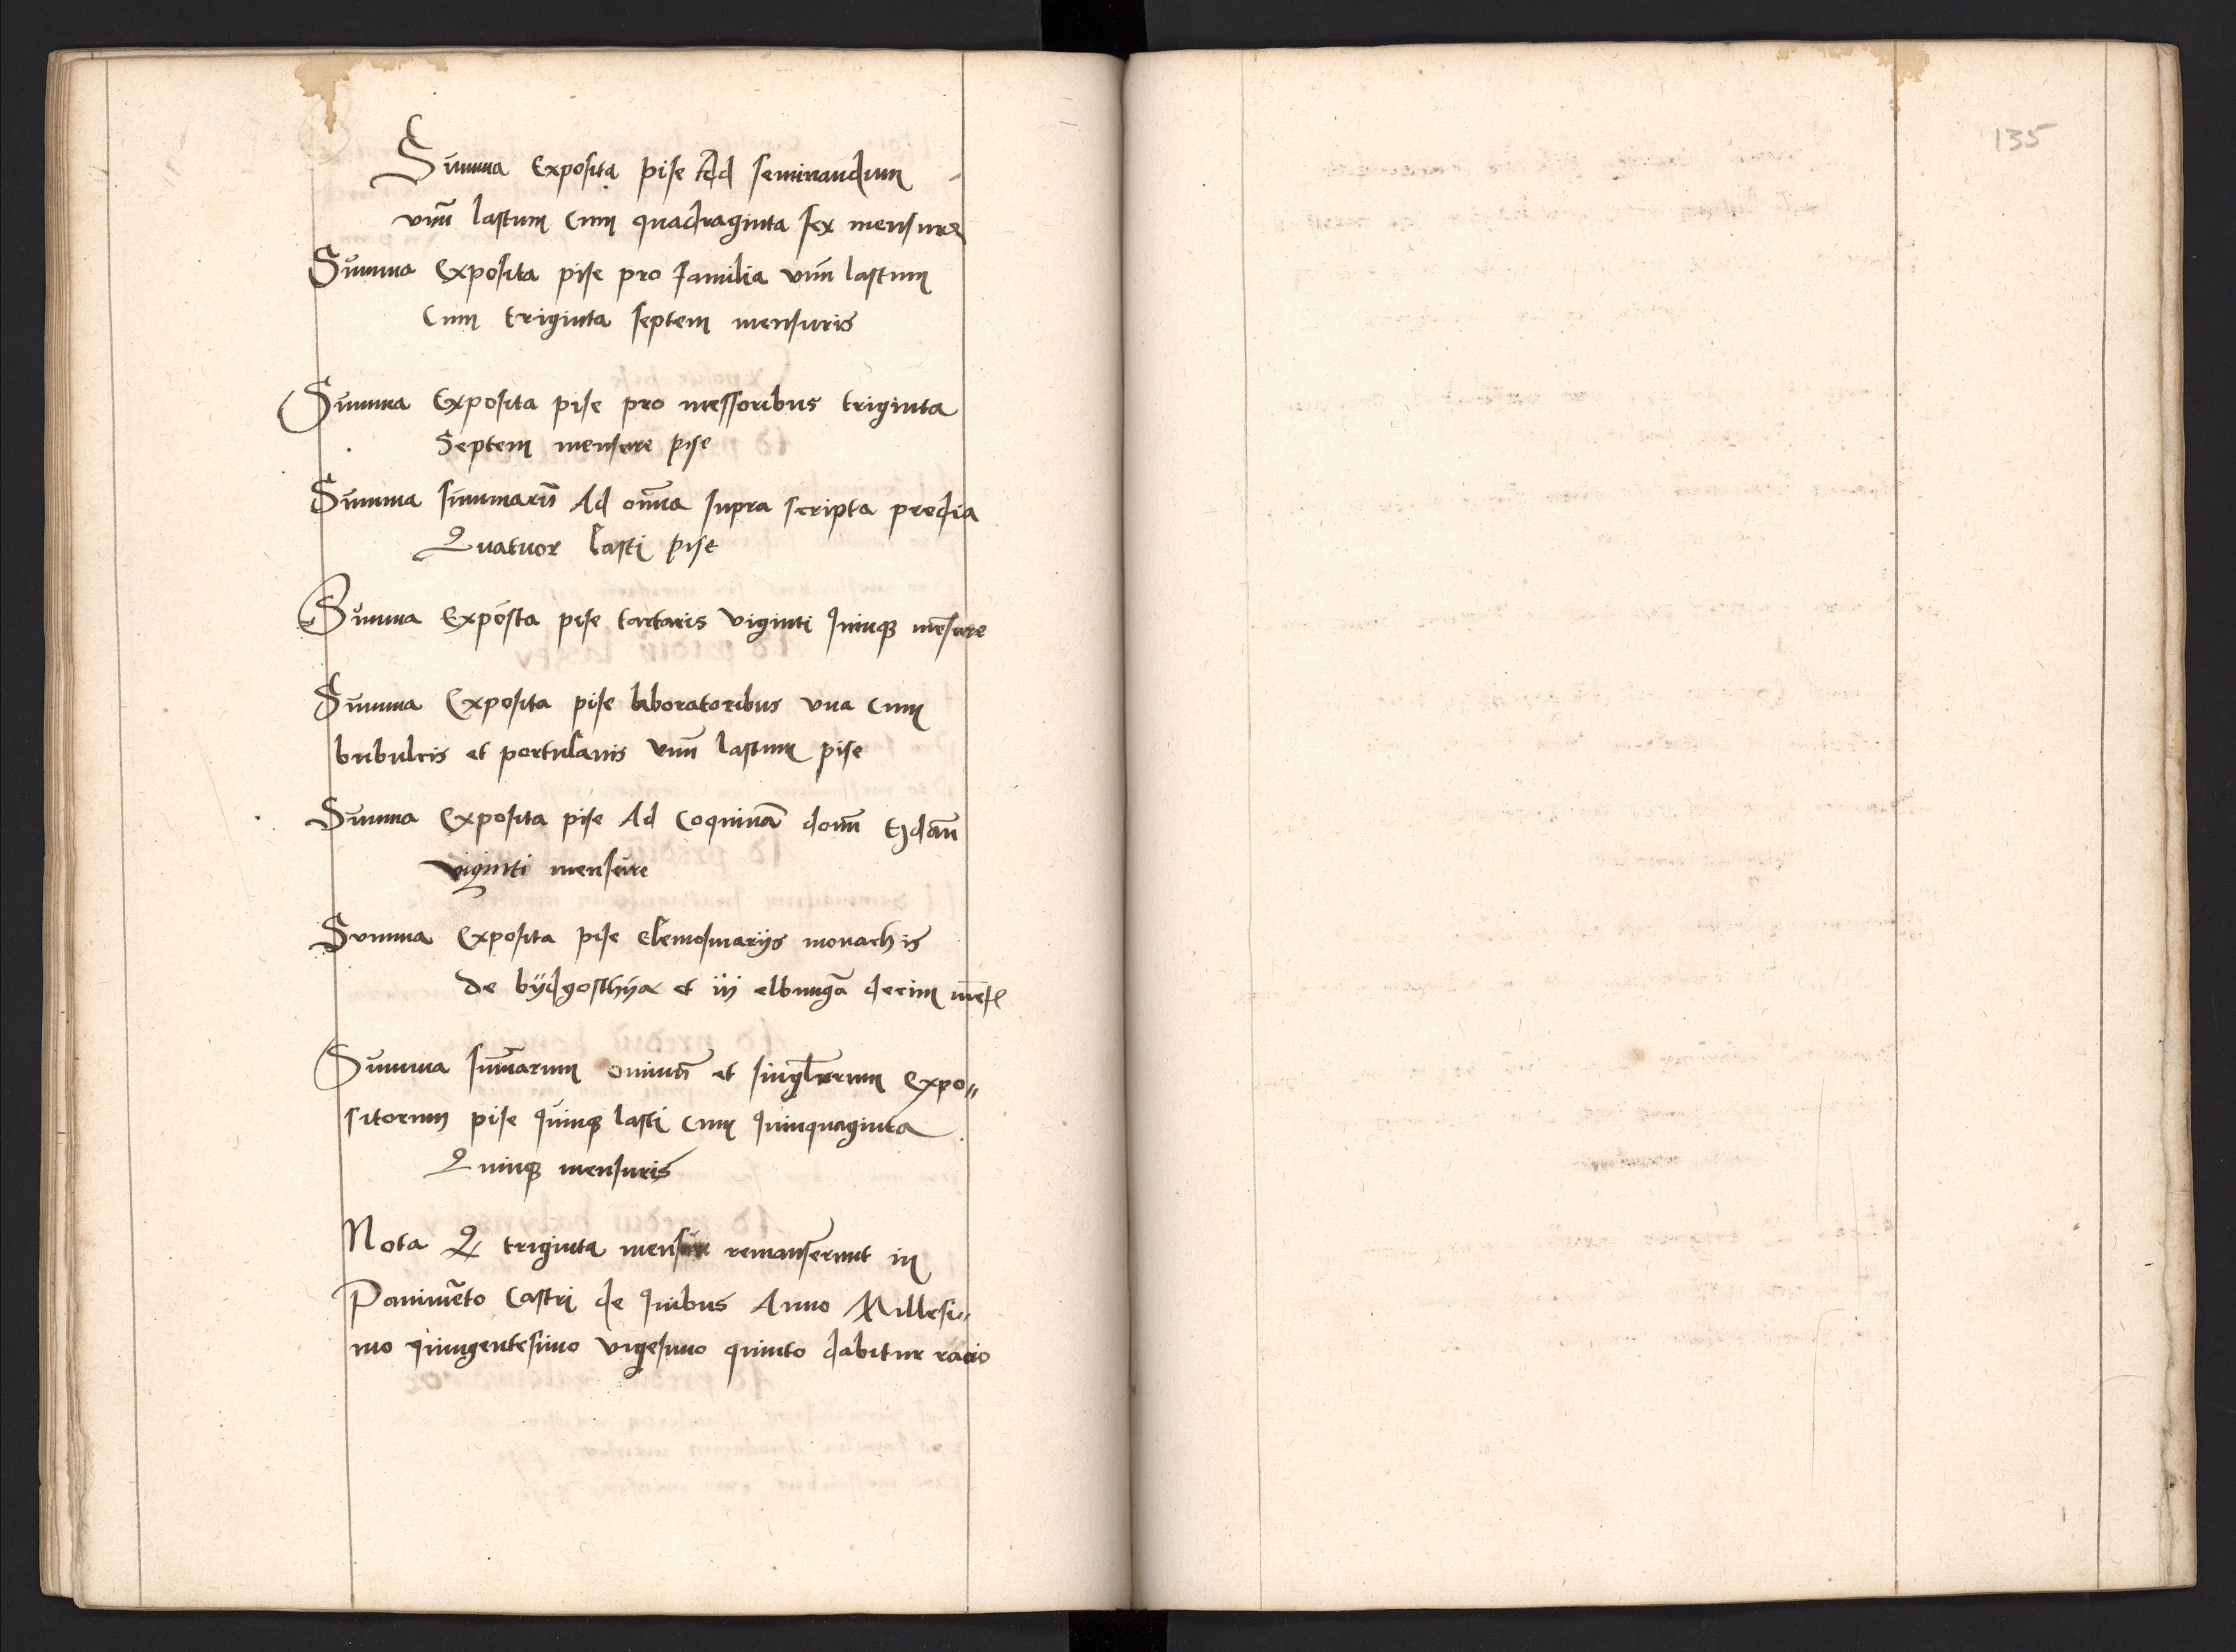 Summa Exposita pise Ad seminandum
vnū lastum cum quadraginta sex mensure
Summa Exposita pise pro familia vnū lastum
Cum triginta septem mensuris
Summa Exposita pise pro messoribus triginta
Septem mensure pise
Summa summarū Ad omīa supra scripta predia
Quatuor lasti pise
Summa Exposta pise tartaris viginti quinqꝫ mēsure
Summa Exposita pise laboratoribus vna cum
bubulcis et portulanis vnū lastum pise
Summa Exposita pise Ad coquinā
viginti mensure
Summa Exposita pise elemosinariis monachis
de bÿdgosthÿa et elbingā decim
Summa sūmarum omiuū et singlarum Expo„
sitorum pise quinqꝫ lasti cum quinquaginta
Quinqꝫ mensuris
Nota triginta mensure remanserunt in
Pauimēto Castri de quibus Anno Millesi„
mo quingentesimo vigesimo quinto dabitur racio
135